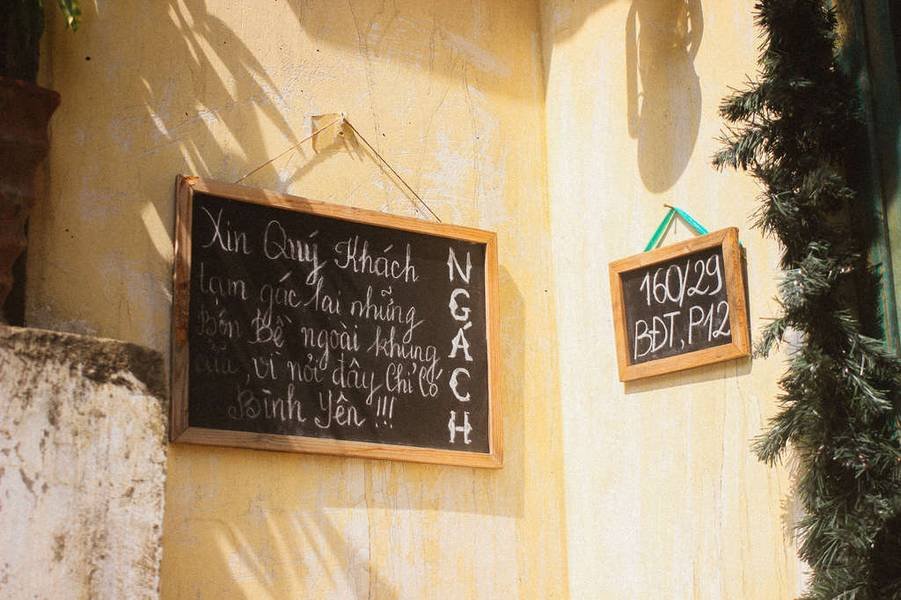 Xin Quý Khách
tạm gác lại những
Bộn Bề ngoài khung
cửa, vì nơi đây Chỉ Có
Bình Yên !!!
NGÁCH
160/29
BĐT, P12